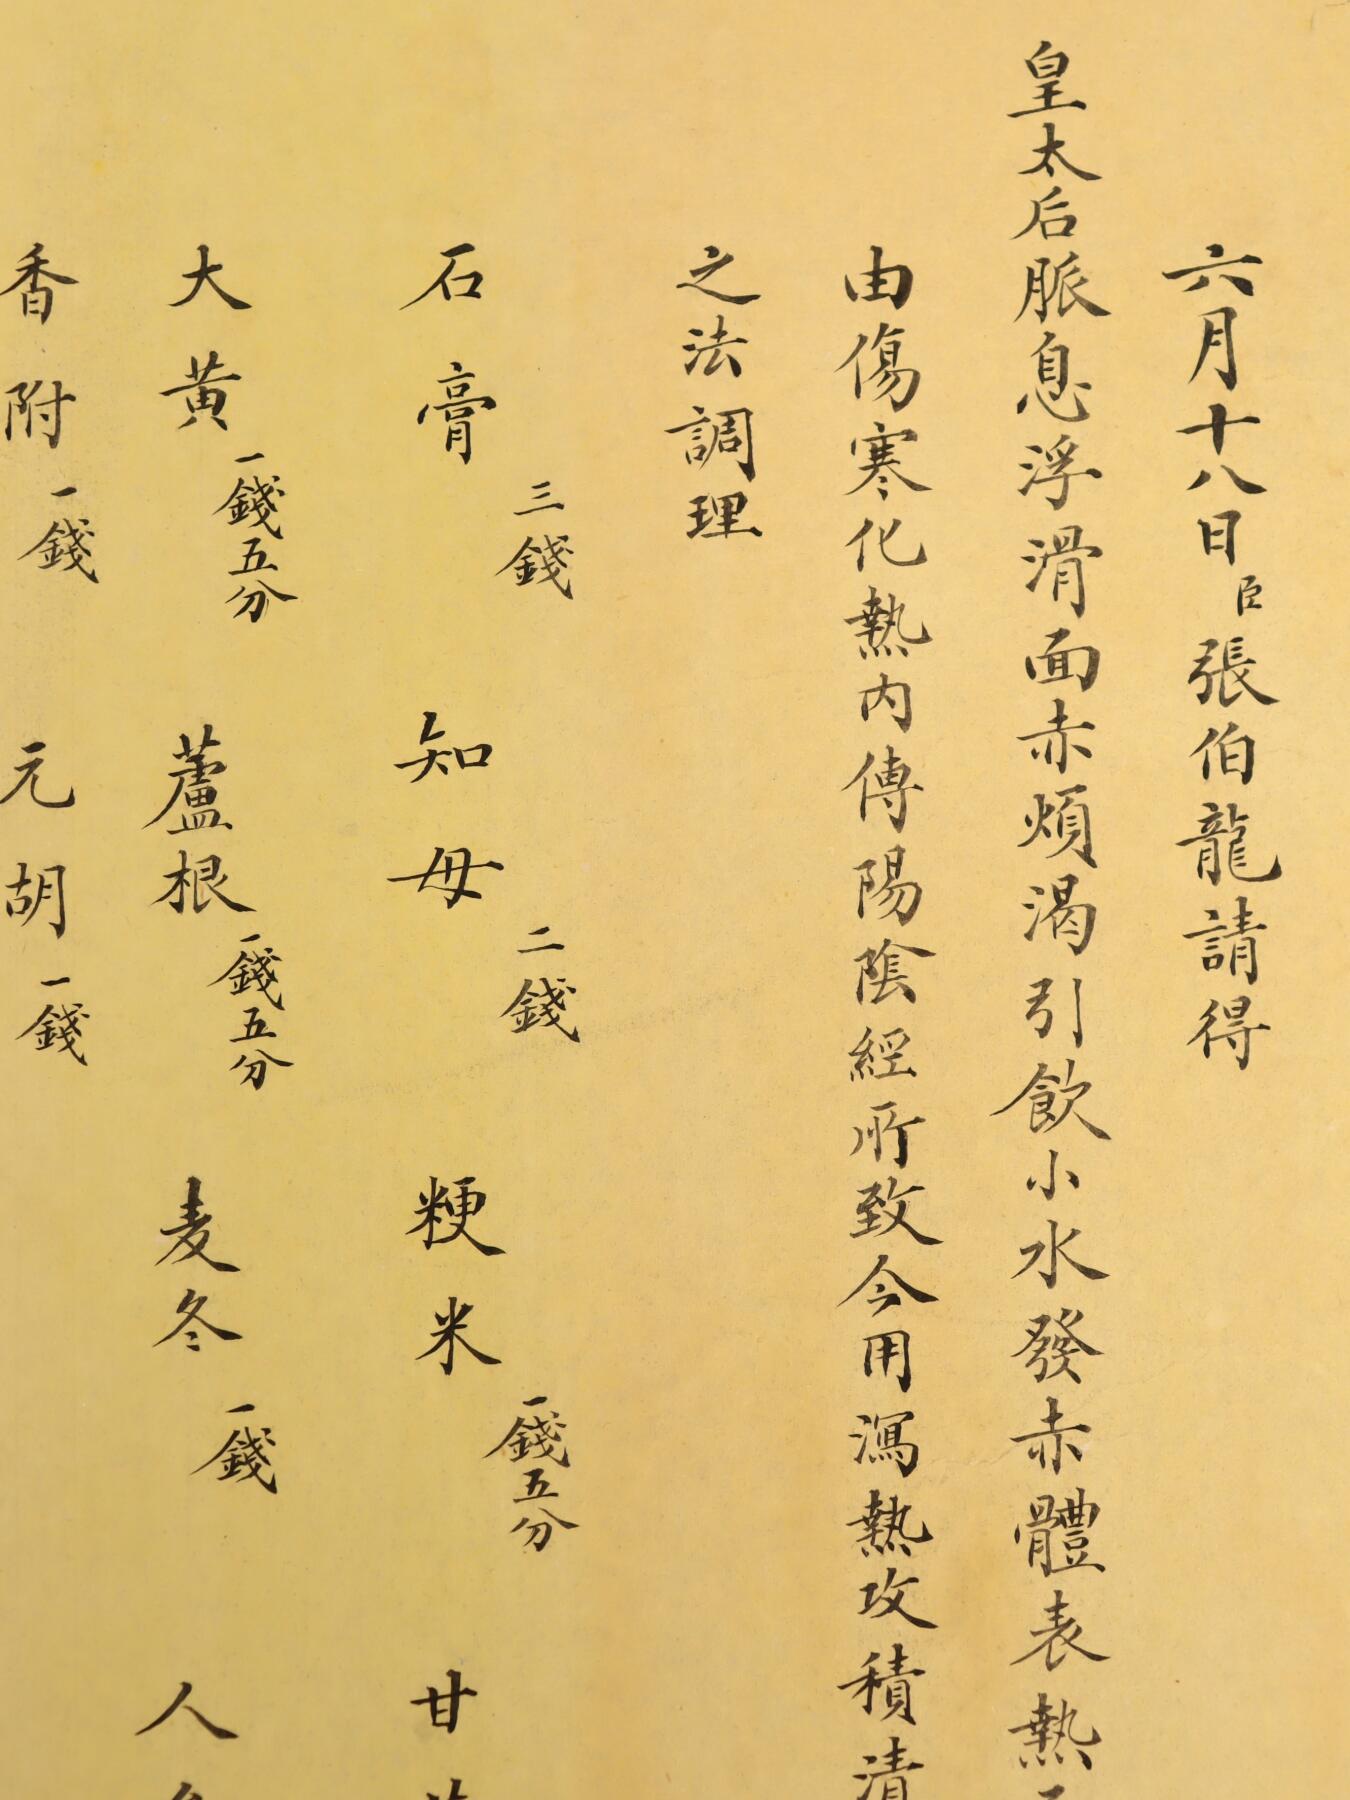 六月十八日臣張伯龍請得
皇太后脈息浮滑面赤煩渴引飲小水發赤體表熱
由傷寒化熱內傳陽陰經所致今用瀉熱攻積清
之法調理
石膏三錢 知母二錢 粳米一錢五分 甘
大黄一錢五分 蘆根一錢五分 麦冬一錢 人
香附一錢 元胡一錢